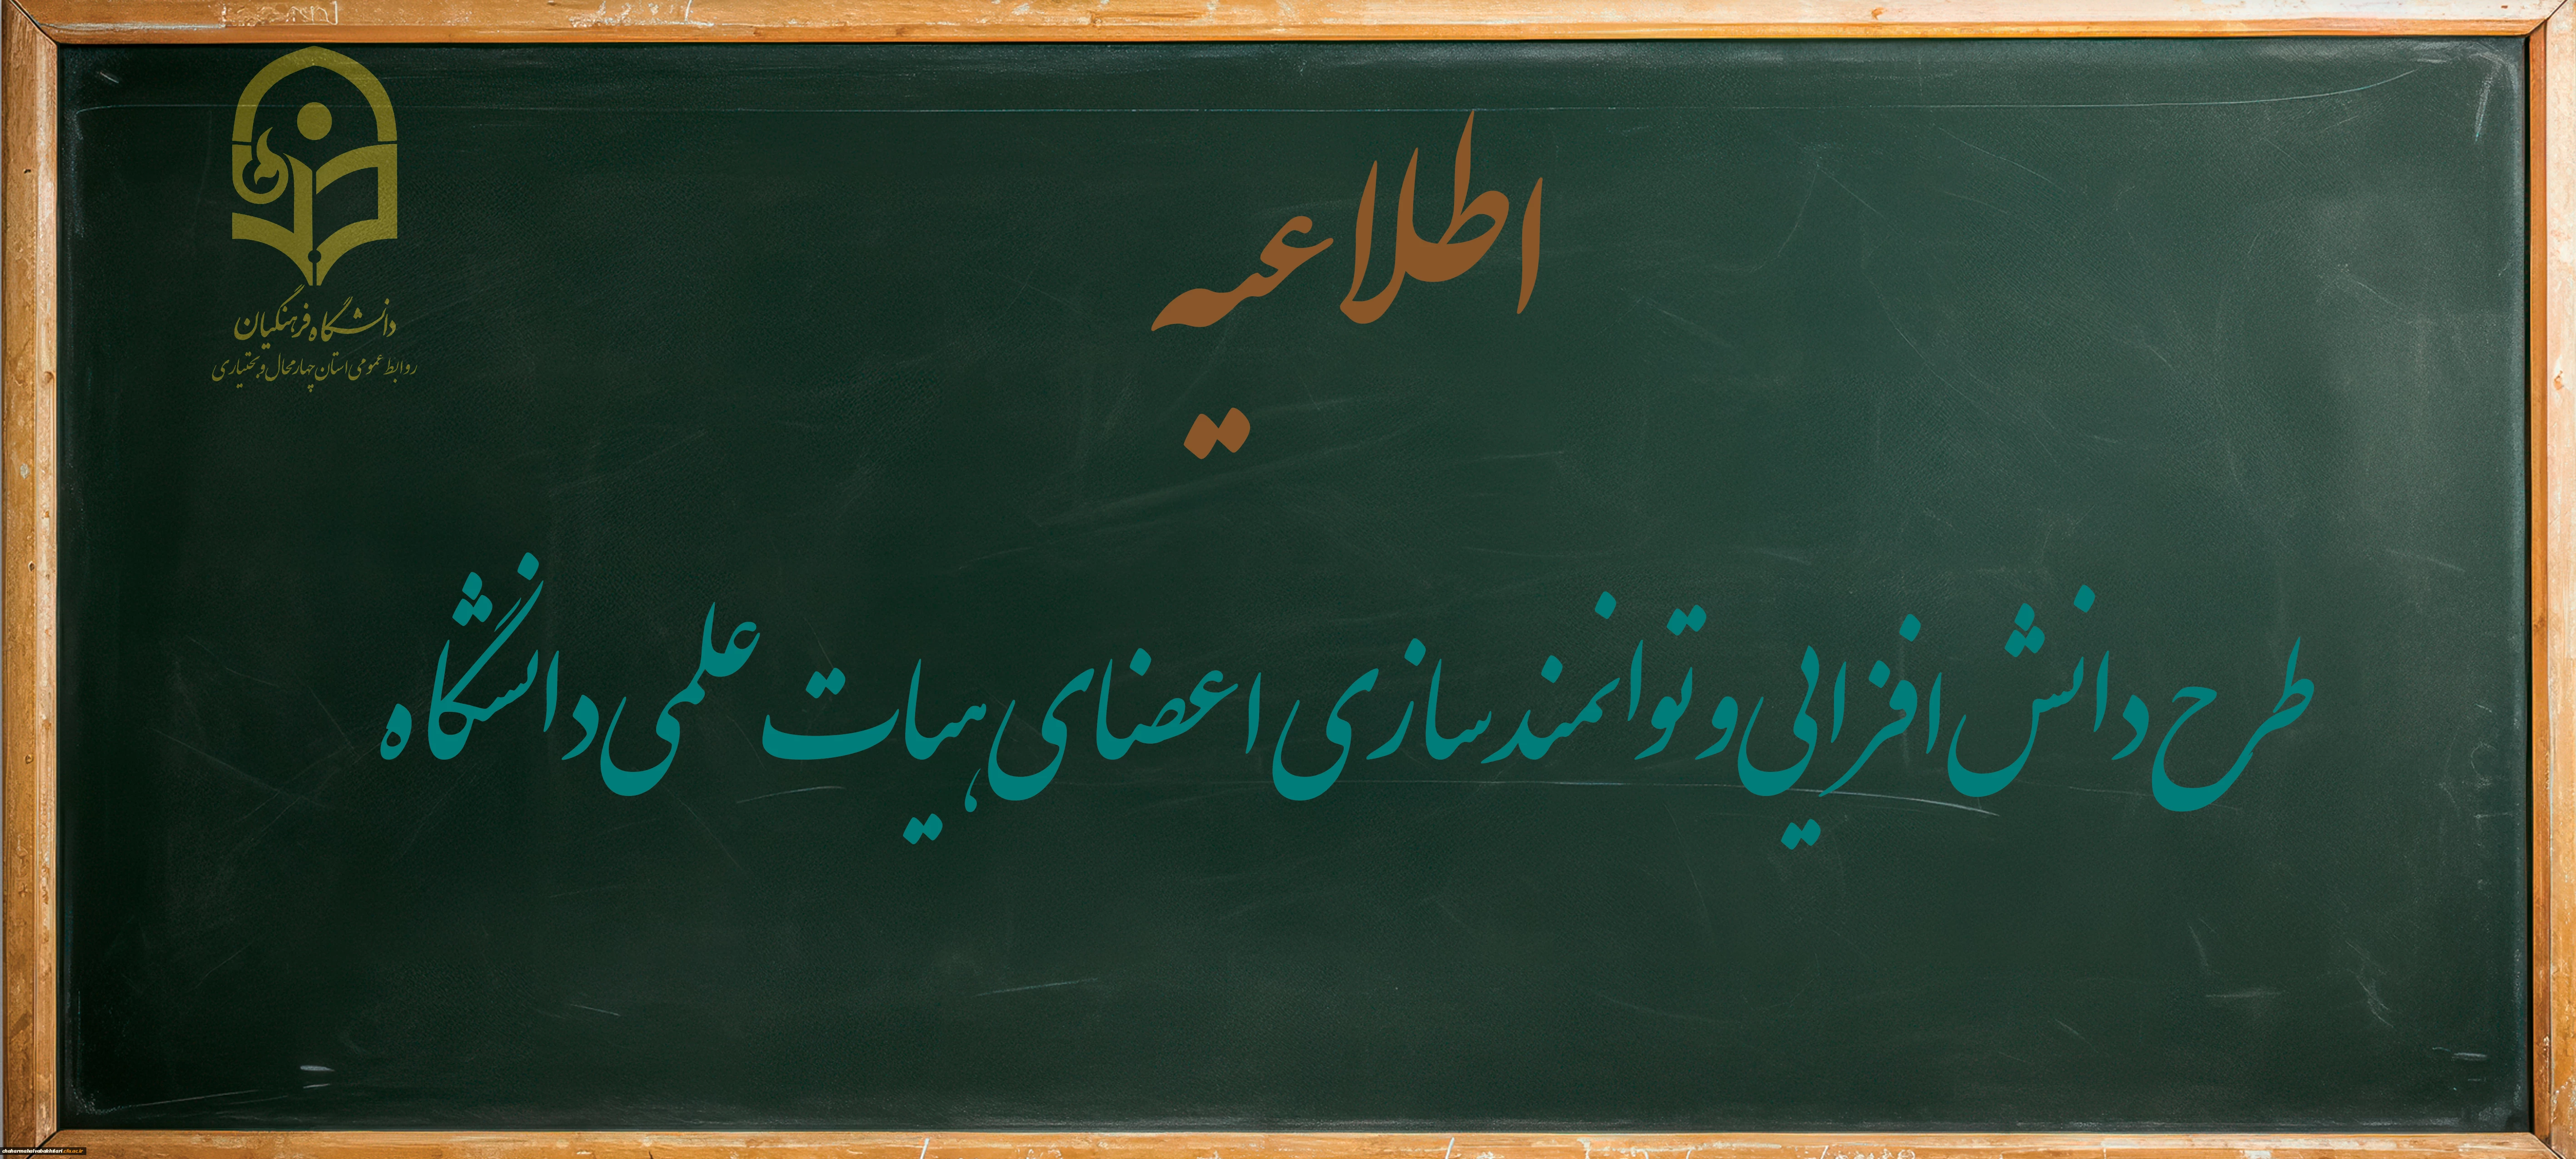 دانشگاه فرهنگیان
روابط عمومی استان چهارمحال و بختیاری
اطلاعیه
طرح دانش افزایی و توانمندسازی اعضای هیات علمی دانشگاه
chaharmahalvabakhtiari.cfu.ac.ir